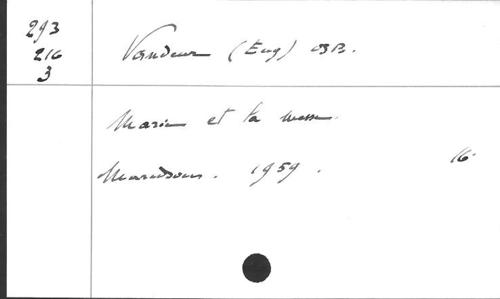 293
216
3
Vandeur (Eug) OSB.
Marie et la messe.
Maredsous. 1959.
16